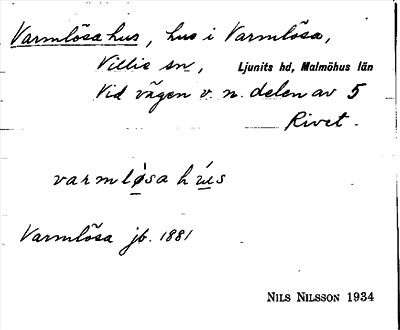 Varmlösa hus, hus i Varmlösa,
Villie sn, Ljunits hd, Malmöhus län
Vid vägen v. n. delen av 5
Rivet.
varmlø̀sa hús
Varmlösa jb. 1881
NILS NILSSON 1934